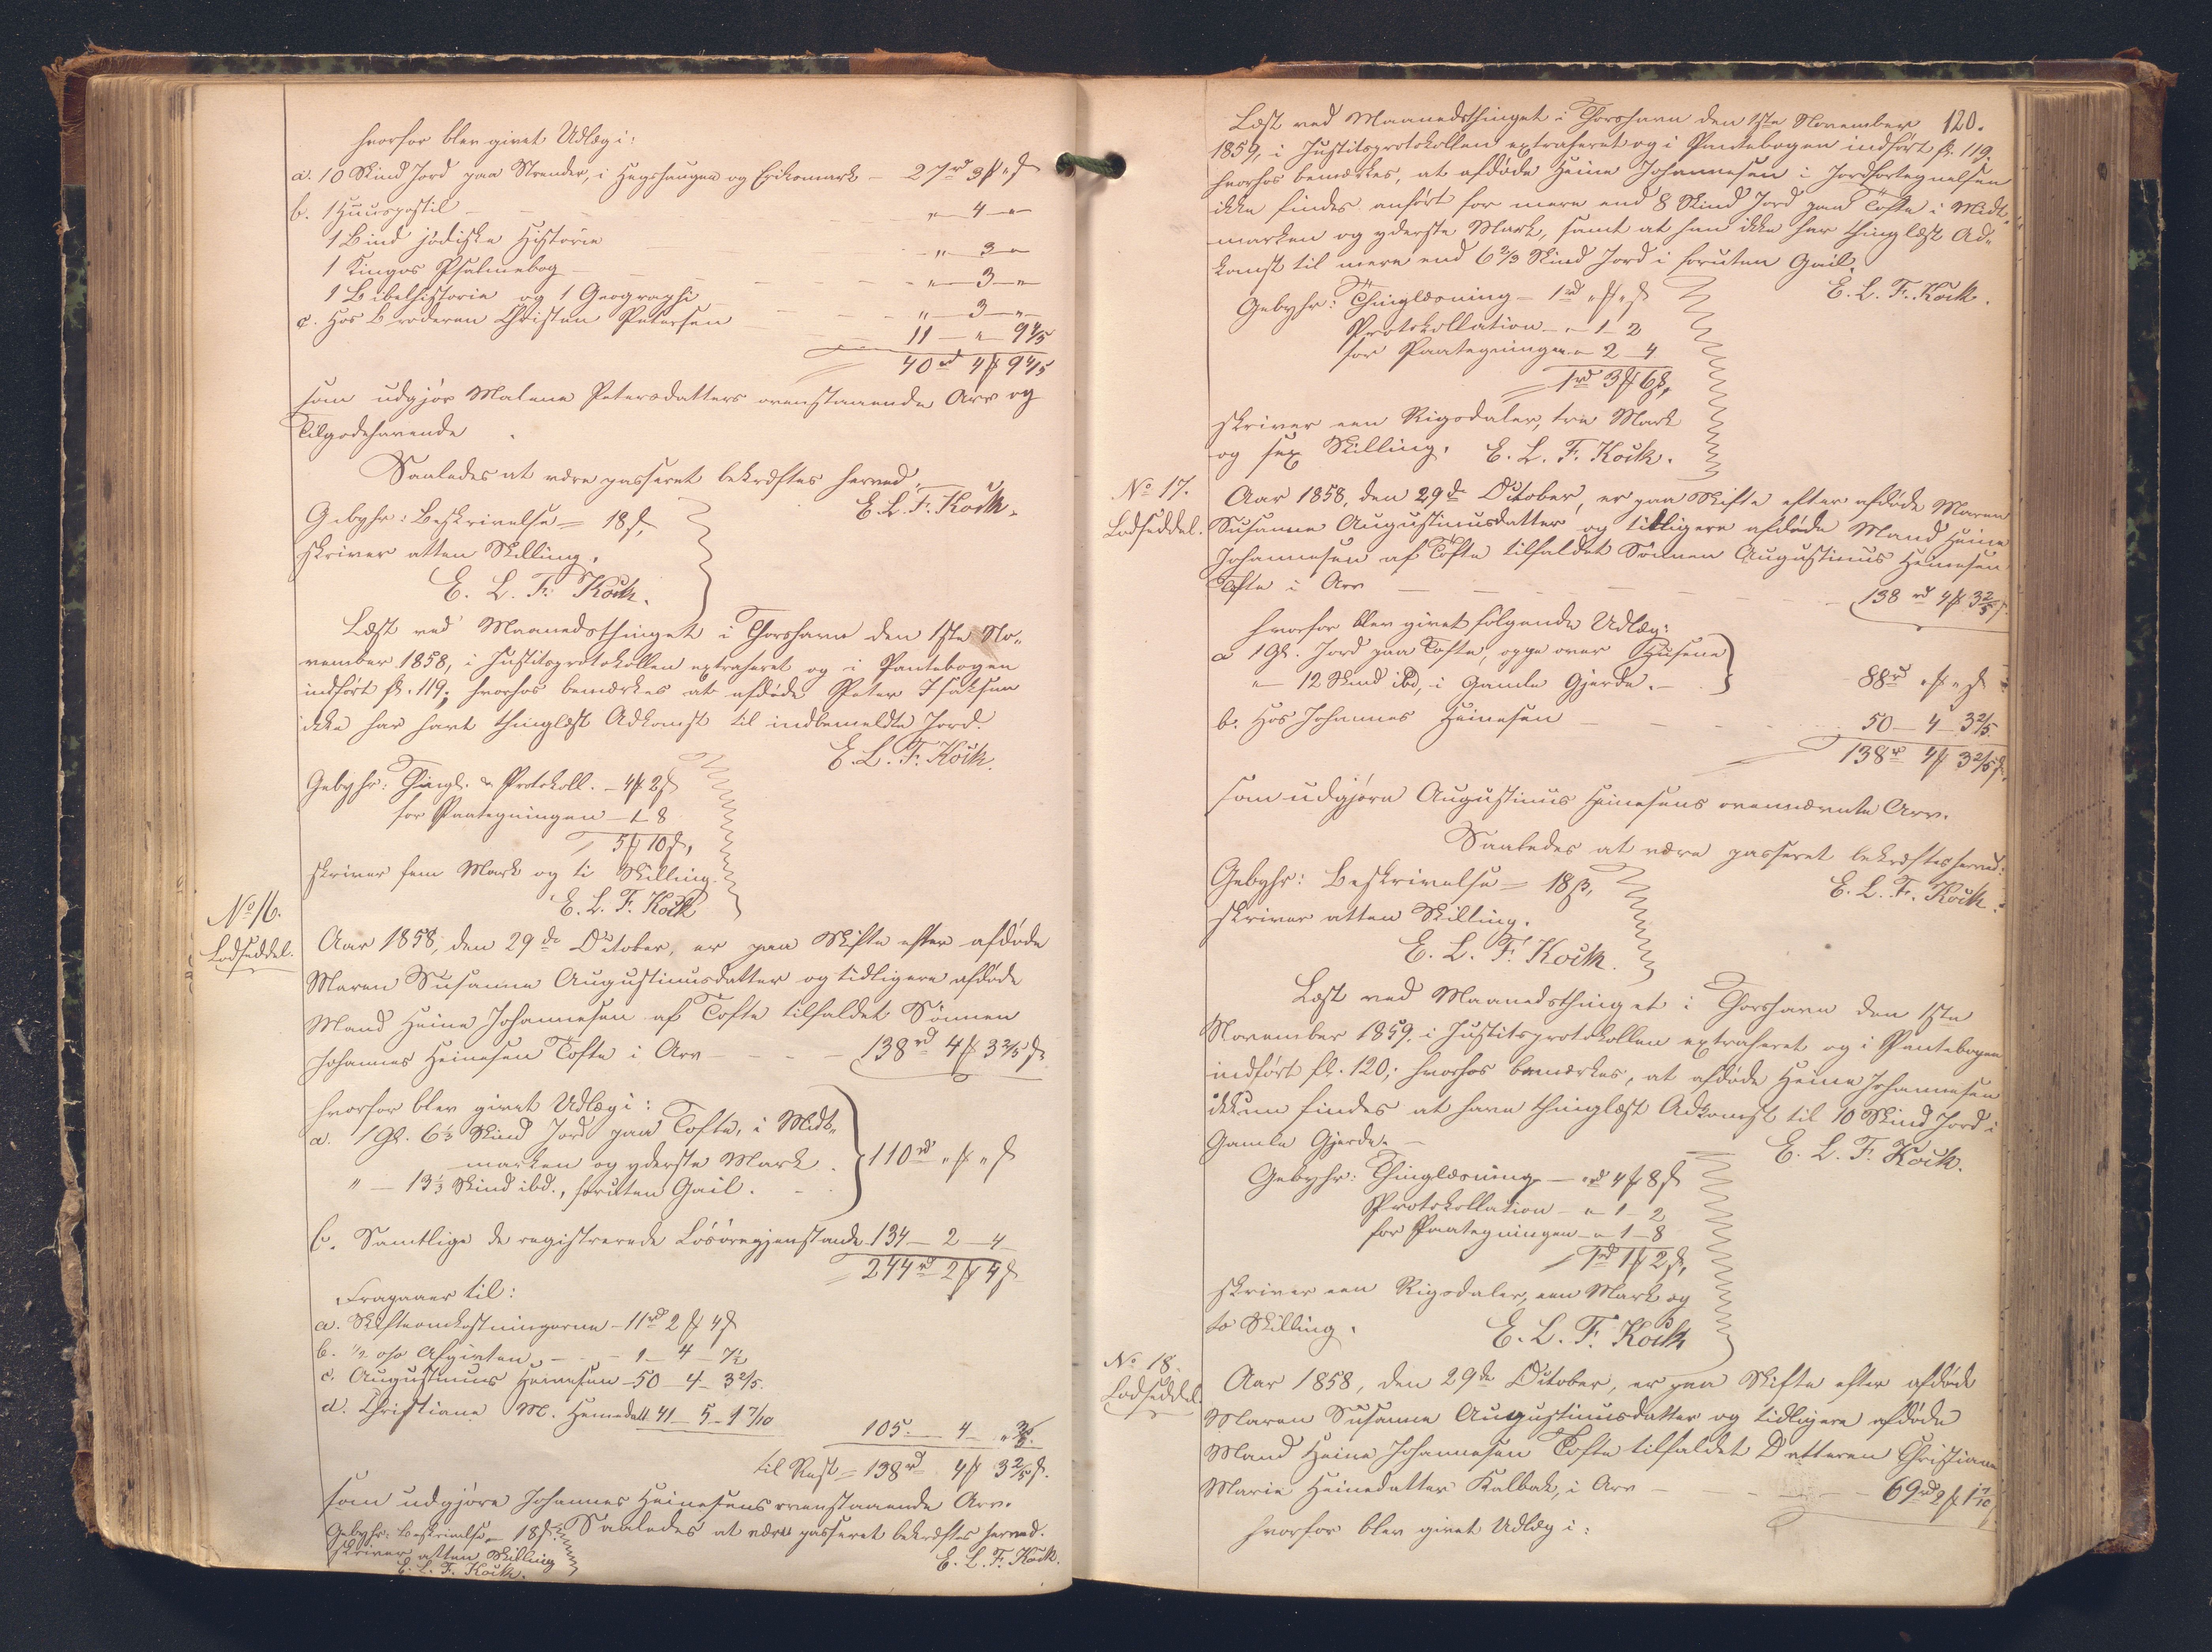 hvorfor blev givet Udlæg i:
a. 10 Skind Jord paa Strender, i Hegshaugen og Eriksmark – 27rd 3ℳ „ß
b. 1 Huuspostil – „ – 4 – „
1 Bind jødiske Historie – „ – 3 – „
1 Kingos Psalmebog – „ – 3 – „
1 Bibelhistorie og 1 Geographi – „ – 3 – „
c. Hos Broderen Christen Petersen – 11 – „ – 9 4/5
40rd 4ℳ 9 4/5
som udgjør Malene Petersdatters ovenstaaende Arv og
Tilgodehavende.
Saaledes at være passeret bekræftes herved.
E. L. F. Koch.
Gebyhr: Beskrivelse = 18ß,
skriver atten Skilling.
E. L. F. Koch.
Læst ved Maanedsthinget i Thorshavn den 1ste No-
vember 1858, i Justitsprotokollen extraheret og i Pantebogen
indført fl. 119; hvorhos bemærkes at afdøde Peter Isaksen
ikke har havt thinglæst Adkomst til indbemeldte Jord.
E. L. F. Koch.
Gebyhr: Thingl. & Protokoll. – 4ℳ 2ß
for Paategningen – 1 – 8
5ℳ 10ß,
skriver fem Mark og ti Skilling.
E. L. F. Koch
No 16.
Lodseddel.
Aar 1858, den 29de October, er paa Skifte efter afdøde
Maren Susanne Augustinusdatter og tidligere afdøde
Mand Heine Johannesen af Tofte tilfaldet Sønnen
Johannes Heinesen Tofte i Arv – 138rd 4ℳ 3 2/5ß
hvorfor blev givet Udlæg i:
a. 1 Gl. 6 1/3 Skind Jord paa Tofte, i Midt-
marken og yderste Mark.
" – 13 1/3 Skind ibd., foruten Gail. – 110rd „ℳ „ß
b. Samtlige de registrerede Løsøregjenstande 134 – 2 – 4
244rd 2ℳ 4ß
Fragaaer til:
a. Skifteomkostningerne – 11rd 2ℳ 4ß
b. 1/2 o/o Afgiften – 1 – 4 – 7 1/2
c. Augustinus Heinesen – 50 – 4 – 3 2/5.
d. Christiane M. Heinedatt 41 – 5 – 1 7/10
105 – 4 – „ 3/5.
til Rest = 138rd 4ℳ 3 2/5ß.
som udgjøre Johannes Heinesens ovenstaaende Arv.
Saaledes at være passeret bekræftes herved.
Gebyhr: Beskrivelse – 18ß
skriver atten Skilling
E. L. F. Koch.
E. L. F. Koch.
120.
Læst ved Maanedsthinget i Thorshavn den 1ste November
1859, i Justitsprotokollen extraheret og i Pantebogen indført fl. 119,
hvorhos bemærkes, at afdøde Heine Johannesen i Jordfortegnelsen
ikke findes anført for mere end 8 Skind Jord paa Tofte i Midt-
marken og yderste Mark, samt at han ikke har thinglæst Ad-
komst til mere end 6 2/3 Skind Jord i foruten Gail.
E. L. F. Koch.
Gebyhr: Thinglæsning – 1rd „ℳ „ß
Protokollation – „ – 1 – 2
for Paategningen – „ 2 – 4
1rd 3ℳ 6ß,
skriver een Rigsdaler, tre Mark
og sex Skilling. E. L. F. Koch.
No 17.
Lodseddel.
Aar 1858, den 29de October, er paa Skifte efter afdøde Maren
Susanne Augustinusdatter og tidligere afdøde Mand Heine
Johannesen af Tofte tilfaldet Sønnen Augustinus Heinesen
Tofte i Arv – 138rd 4ℳ 3 2/5ß.
hvorfor blev givet følgende Udlæg:
a 1 Gl. Jord paa Tofte, oppe over Husene
" – 12 Skind ibd, i Gamle Gjerde. – 88rd „ℳ „ß
b. Hos Johannes Heinesen – 50 – 4 – 3 2/5.
138rd 4ℳ 3 2/5ß.
som udgjøre Augustinus Heinesens ovennævnte Arv.
Saaledes at være passeret bekræftes herved.
E. L. F. Koch.
Gebyhr: Beskrivelse = 18ß,
skriver atten Skilling.
E. L. F. Koch.
Læst ved Maanedsthinget i Thorshavn den 1ste
November 1859, i Justitsprotokollen extraheret og i Pantebogen
indført fl. 120; hvorhos bemærkes, at afdøde Heine Johannesen
ikkun findes at have thinglæst Adkomst til 10 Skind Jord i
Gamle Gjerde. –
E. L. F. Koch.
Gebyhr: Thinglæsning – „rd 4ℳ 8ß
Protokollation – „ – 1 – 2
for Paategningen – „ – 1 – 8
1rd 1ℳ 2ß,
skriver een Rigsdaler, een Mark og
to Skilling.
E. L. F. Koch
No 18.
Lodseddel.
Aar 1858, den 29de October, er paa Skifte efter afdøde
Maren Susanne Augustinusdatter og tidligere afdøde
Mand Heine Johannesen Tofte tilfaldet Datteren Christiane
Marie Heinedatter Kalbak, i Arv – 69rd 2ℳ 1 7/10
hvorfor blev givet Udlæg i: